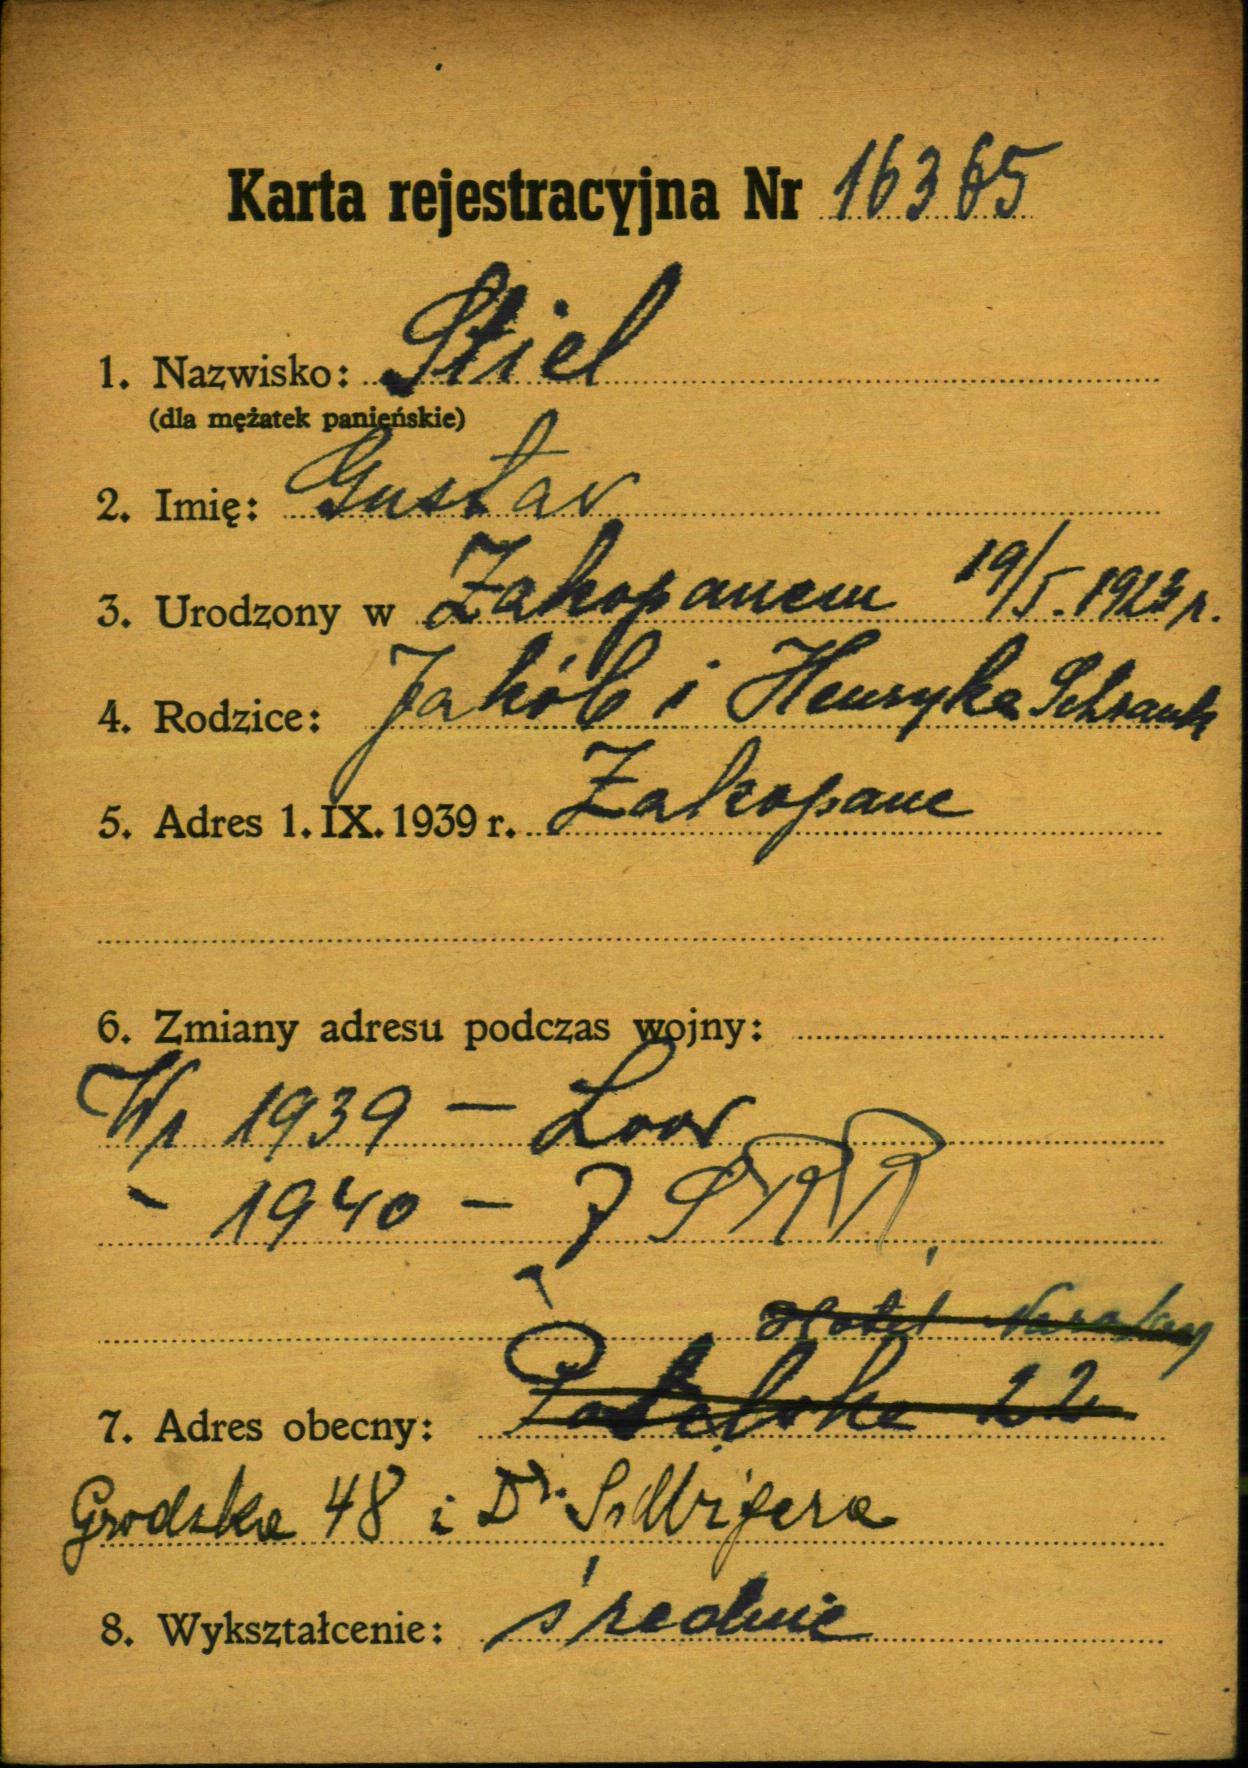 Karta rejestracyjna Nr 16365
1. Nazwisko: Stiel
(dla mężatek panieńskie)
2. Imię: Gustav
3. Urodzony w Zakopanem 19/I. 1923 r.
4. Rodzice: Jakób i Henryka Schrank
5. Adres 1. IX. 1939 r. Zakopane
6. Zmiany adresu podczas wojny:
Wr 1939 — Lwów
" 1940 — ZSRR
Hotel
7. Adres obecny: Poselska 22
Grodzka 48 i Dr.
8. Wykształcenie: średnie